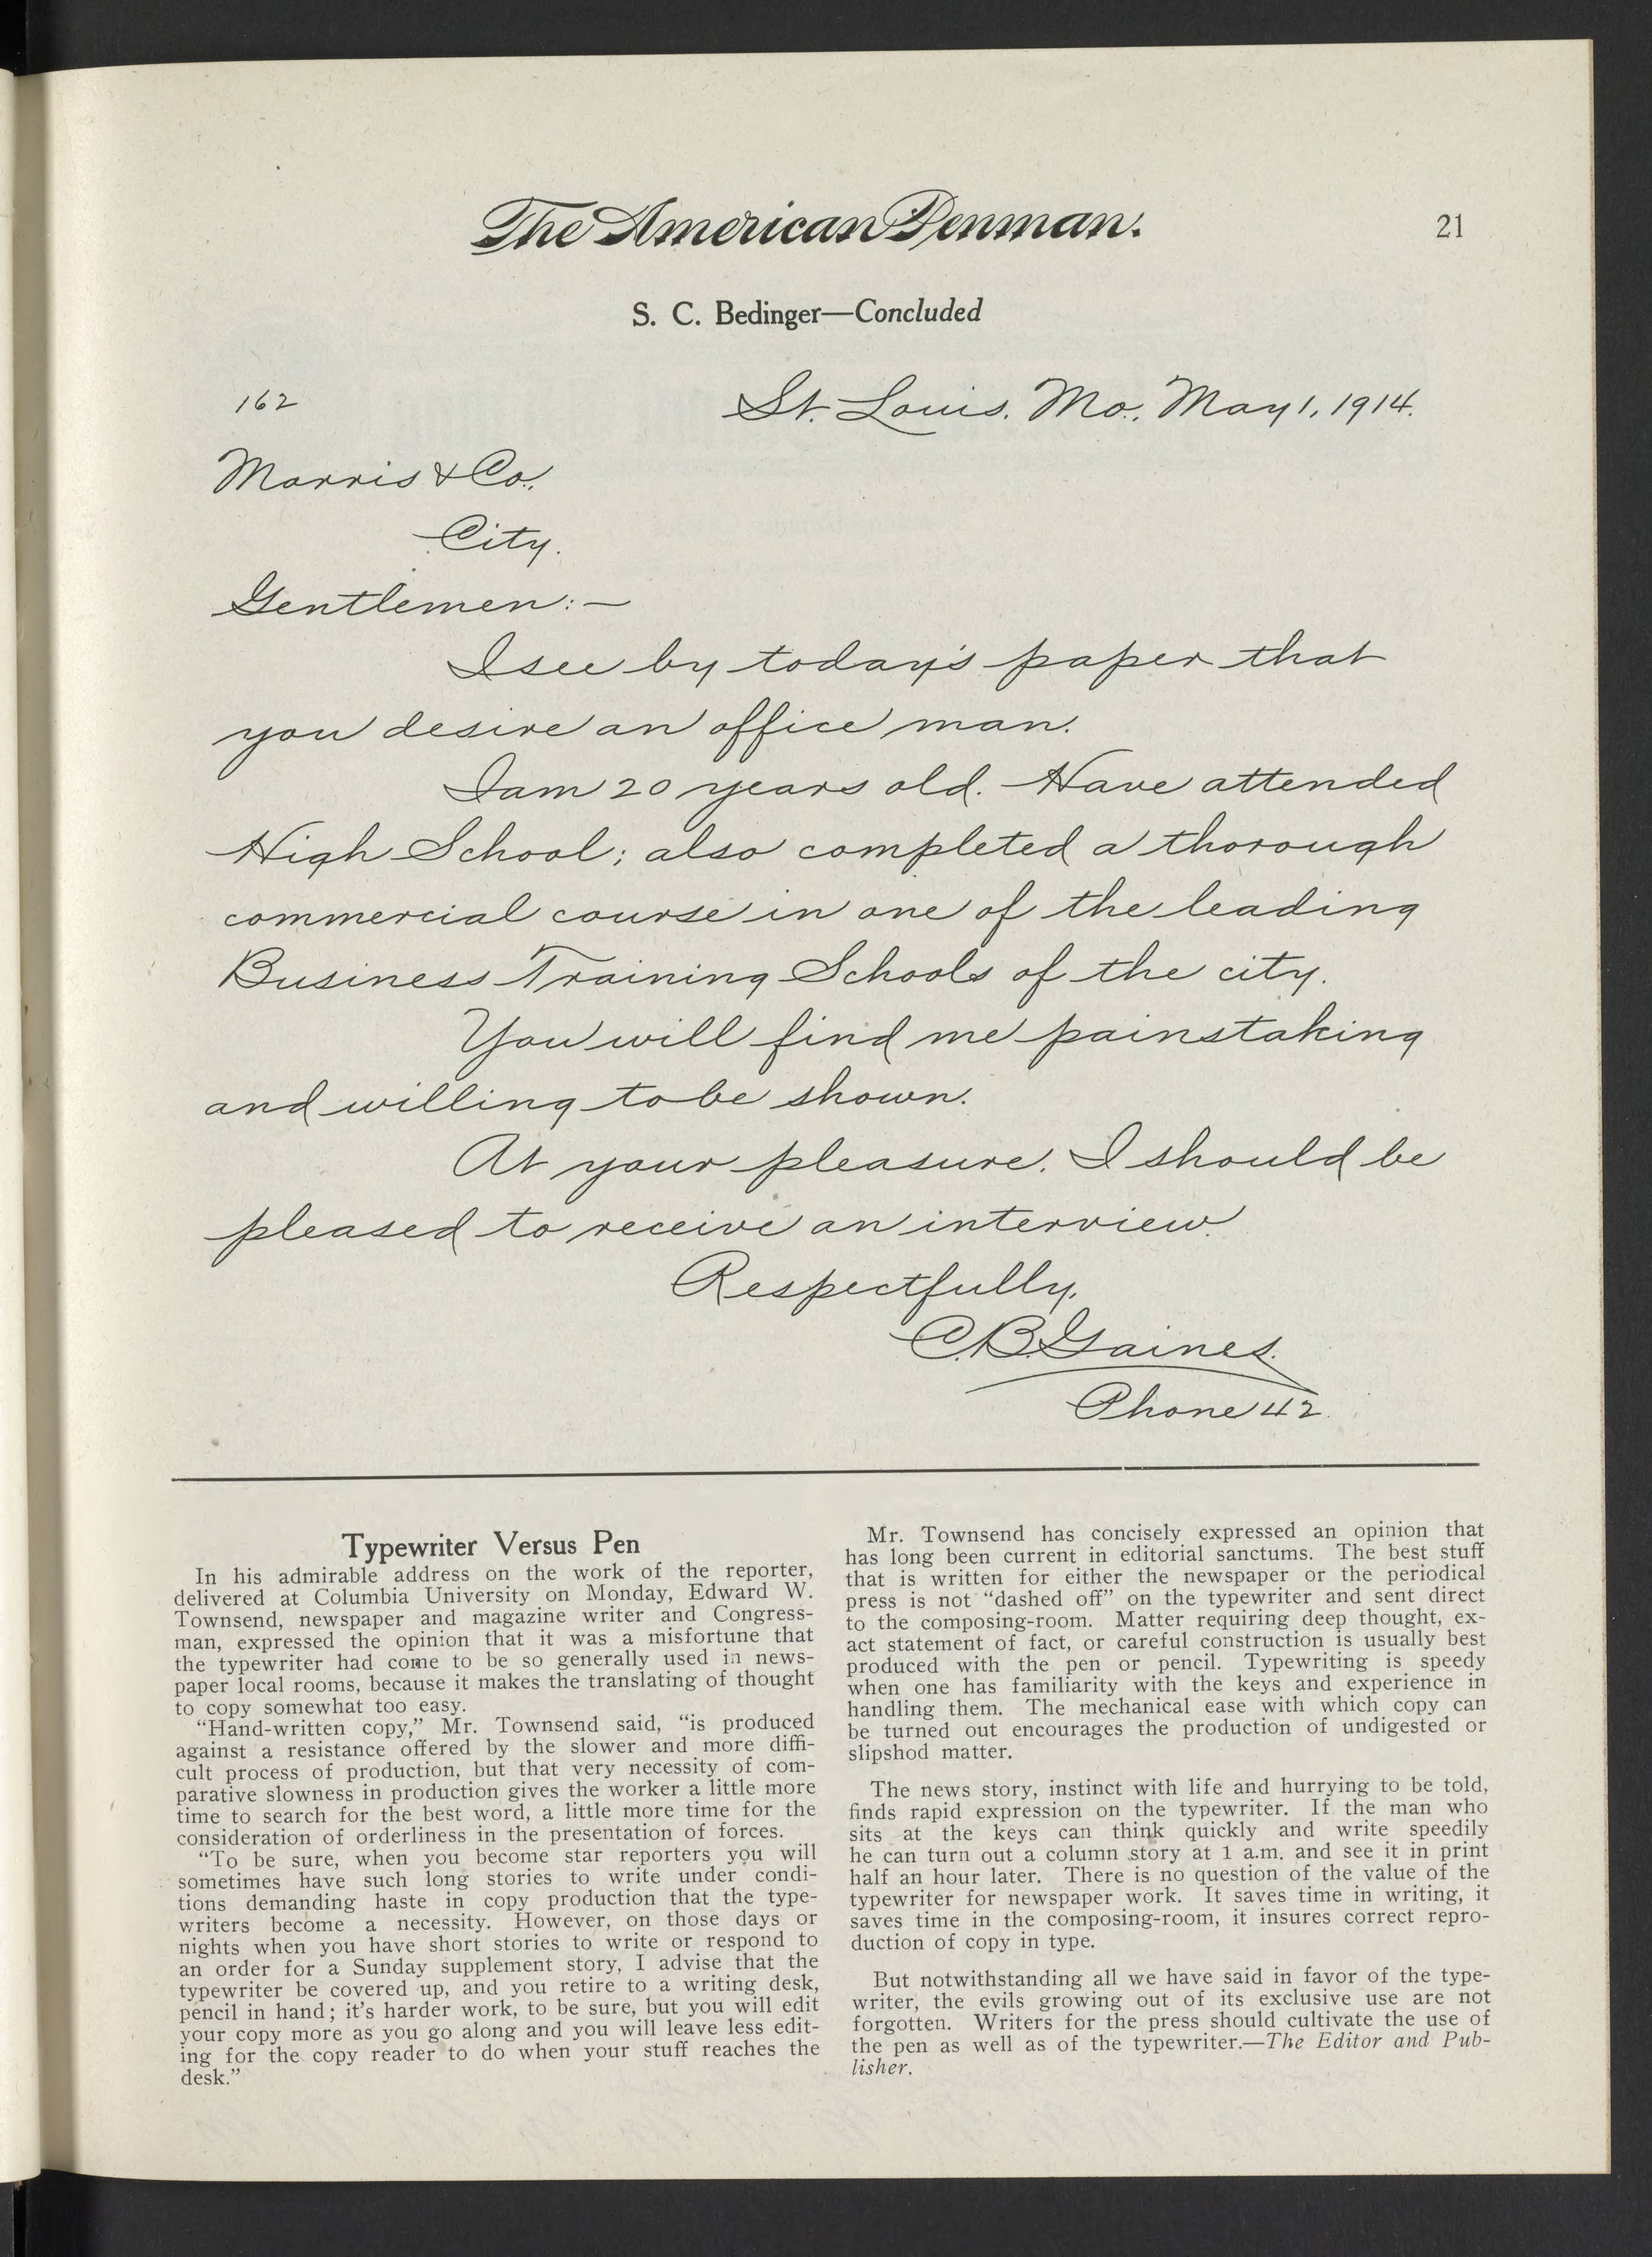 The American Penman.
21
S. C. Bedinger—Concluded
162
St. Louis, Mo., May 1, 1914.
Morris & Co.,
City.
Gentlemen:—
I see by today's paper that
you desire an office man.
I am 20 years old. Have attended
High School; also completed a thorough
commercial course in one of the leading
Business Training Schools of the city.
You will find me painstaking
and willing to be shown.
At your pleasure, I should be
pleased to receive an interview.
Respectfully,
C.B. Gaines.
Phone 42.
Typewriter Versus Pen
In his admirable address on the work of the reporter,
delivered at Columbia University on Monday, Edward W.
Townsend, newspaper and magazine writer and Congress-
man, expressed the opinion that it was a misfortune that
the typewriter had come to be so generally used in news-
paper local rooms, because it makes the translating of thought
to copy somewhat too easy.
“Hand-written copy,” Mr. Townsend said, “is produced
against a resistance offered by the slower and more diffi-
cult process of production, but that very necessity of com-
parative slowness in production gives the worker a little more
time to search for the best word, a little more time for the
consideration of orderliness in the presentation of forces.
“To be sure, when you become star reporters you will
sometimes have such long stories to write under condi-
tions demanding haste in copy production that the type-
writers become a necessity. However, on those days or
nights when you have short stories to write or respond to
an order for a Sunday supplement story, I advise that the
typewriter be covered up, and you retire to a writing desk,
pencil in hand; it's harder work, to be sure, but you will edit
your copy more as you go along and you will leave less edit-
ing for the copy reader to do when your stuff reaches the
desk.”
Mr. Townsend has concisely expressed an opinion that
has long been current in editorial sanctums. The best stuff
that is written for either the newspaper or the periodical
press is not “dashed off” on the typewriter and sent direct
to the composing-room. Matter requiring deep thought, ex-
act statement of fact, or careful construction is usually best
produced with the pen or pencil. Typewriting is speedy
when one has familiarity with the keys and experience in
handling them. The mechanical ease with which copy can
be turned out encourages the production of undigested or
slipshod matter.
The news story, instinct with life and hurrying to be told,
finds rapid expression on the typewriter. If the man who
sits at the keys can think quickly and write speedily
he can turn out a column story at 1 a.m. and see it in print
half an hour later. There is no question of the value of the
typewriter for newspaper work. It saves time in writing, it
saves time in the composing-room, it insures correct repro-
duction of copy in type.
But notwithstanding all we have said in favor of the type-
writer, the evils growing out of its exclusive use are not
forgotten. Writers for the press should cultivate the use of
the pen as well as of the typewriter.—The Editor and Pub-
lisher.